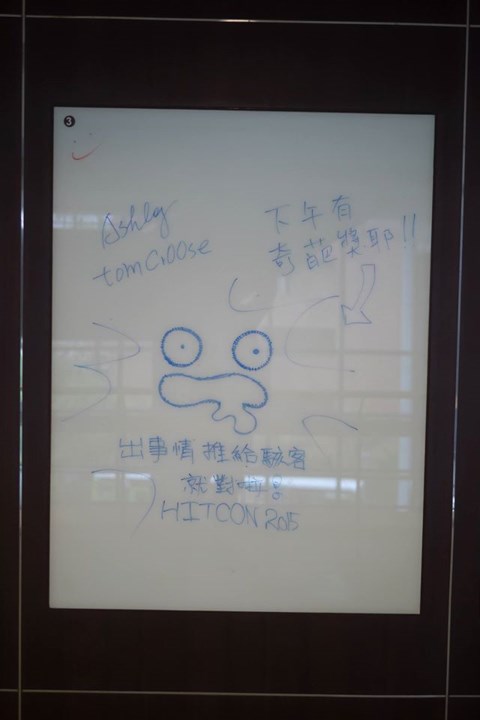 3
Ashly
tomcroose
下午有
奇葩獎耶!!
出事情推給駭客
就對啦!
HITCON 2015